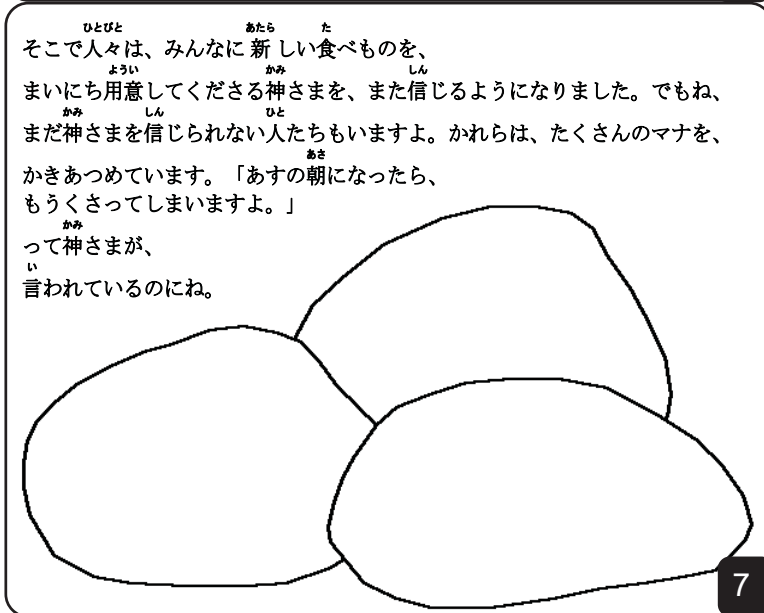 そこで人々は、みんなに新しい食べものを、
まいにち用意してくださる神さまを、また信じるようになりました。でもね、
まだ神さまを信じられない人たちもいますよ。かれらは、たくさんのマナを、
かきあつめています。「あすの朝になったら、
もうくさってしまいますよ。」
って神さまが、
言われているのにね。
7